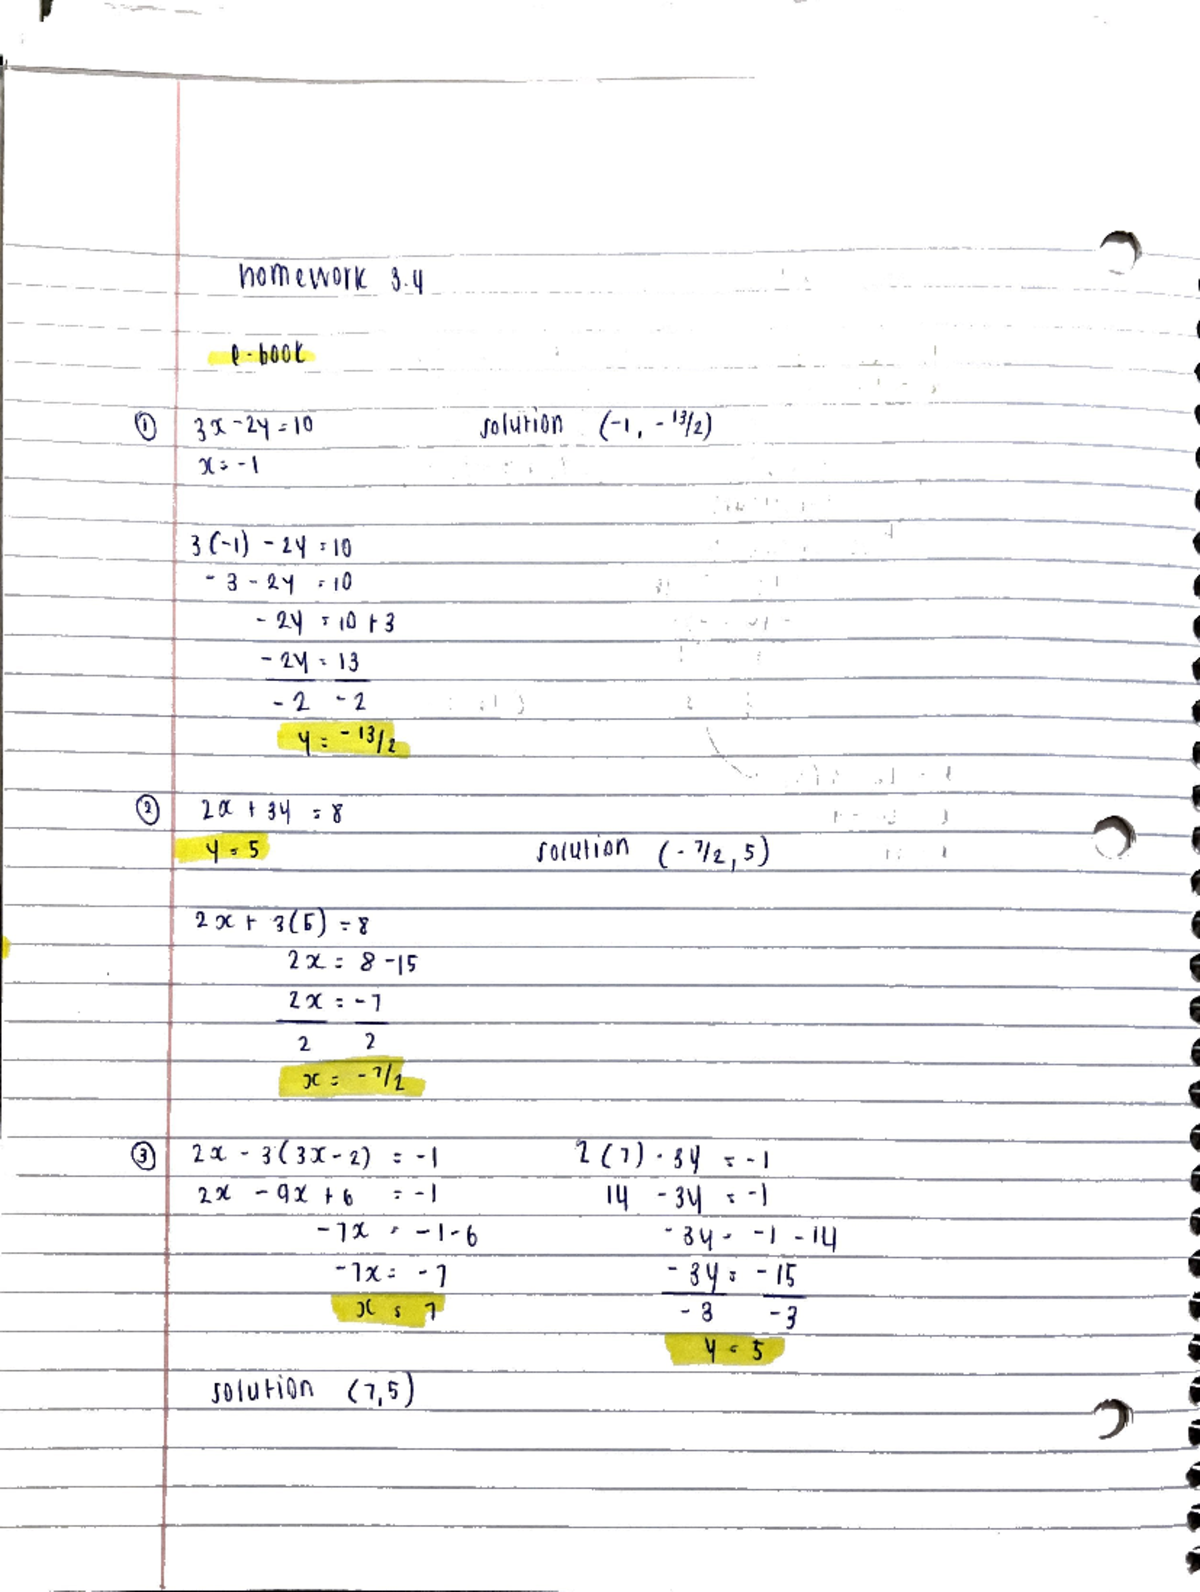 homework 3.4
e-book
① 3x - 2y = 10 solution (-1, -13/2)
x = -1
3(-1) - 2y = 10
-3 - 2y = 10
-2y = 10 + 3
-2y = 13
-2 -2
y = -13/2
② 2x + 3y = 8
y = 5 solution (-7/2, 5)
2x + 3(5) = 8
2x = 8 - 15
2x = -7
2 2
x = -7/2
③ 2x - 3(3x - 2) = -1 2(7) - 3y = -1
2x - 9x + 6 = -1 14 - 3y = -1
-7x = -1 - 6 -3y = -1 - 14
-7x = -7 -3y = -15
x = 7 -3 -3
y = 5
solution (7, 5)